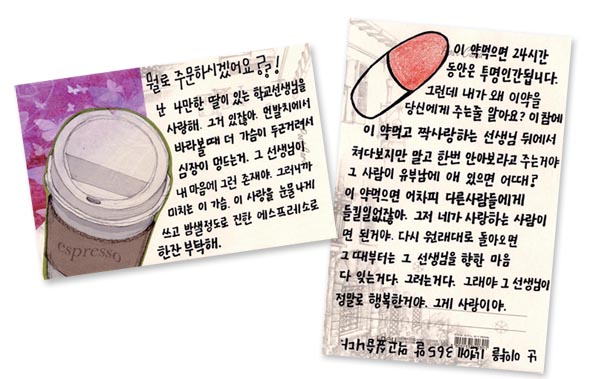 뭘로 주문하시겠어요??!
난 나만한 딸이 있는 학교선생님을
사랑해. 그저 있잖아. 먼발치에서
바라볼때 더 가슴이 두근거려서
심장이 멍드는거. 그 선생님이
내 마음에 그런 존재야. 그러니까
미치는 이 가슴. 이 사랑을 눈물나게
쓰고 밤샐정도로 진한 에스프레소로
한잔 부탁해.
espresso
이 약먹으면 24시간
동안은 투명인간됩니다.
그런데 내가 왜 이약을
당신에게 주는줄 알아요? 이참에
이 약먹고 짝사랑하는 선생님 뒤에서
쳐다보지만 말고 한번 안아보라고 주는거야
그 사람이 유부남에 애 있으면 어때?
이 약먹으면 어차피 다른사람들에게
들킬일없잖아. 그저 네가 사랑하는 사람이
면 된거야. 다시 원래대로 돌아오면
그 때부터는 그 선생님을 향한 마음
다 잊는거다. 그러는거다. 그래야 그 선생님이
정말로 행복한거야. 그게 사랑이야.
난 이약을 1년에 365알 먹고싶습니다.